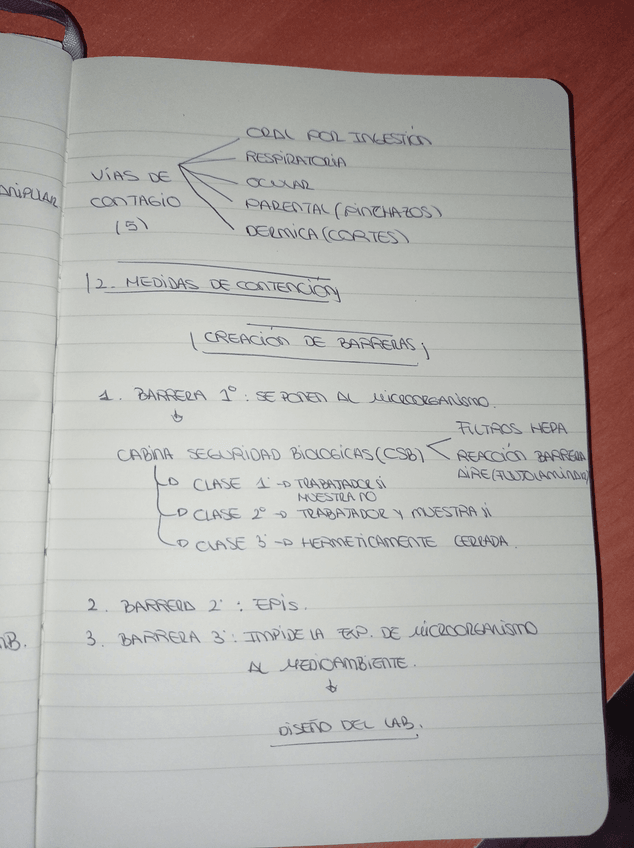 ANIPULAR
NB.
ORAL POR INGESTIÓN
RESPIRATORIA
VÍAS DE
OCULAR
CONTAGIO
PARENTAL (PINCHAZOS)
(5)
DERMICA (CORTES)
2. MEDIDAS DE CONTENCIÓN
CREACIÓN DE BARRERAS
1. BARRERA 1º: SE PONEN AL MICROORGANISMO.
FILTROS HEPA
CABINA SEGURIDAD BIOLOGICAS (CSB)
REACCIÓN BARRERA
AIRE (FLUJO LAMINAR)
CLASE 1 → TRABAJADOR SI
MUESTRA NO
CLASE 2º → TRABAJADOR Y MUESTRA SI
CLASE 3 → HERMETICAMENTE CERRADA.
2. BARRERA 2: EPIS.
3. BARRERA 3: IMPIDE LA EXP. DE MICROORGANISMO
AL MEDIOAMBIENTE.
DISEÑO DEL LAB.